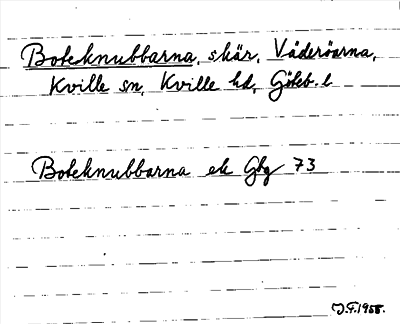 Boteknubbarna, skär, Väderöarna,
Kville sn, Kville hd, Göteb. l
Boteknubbarna ek Gbg 73
J.F. 1958.